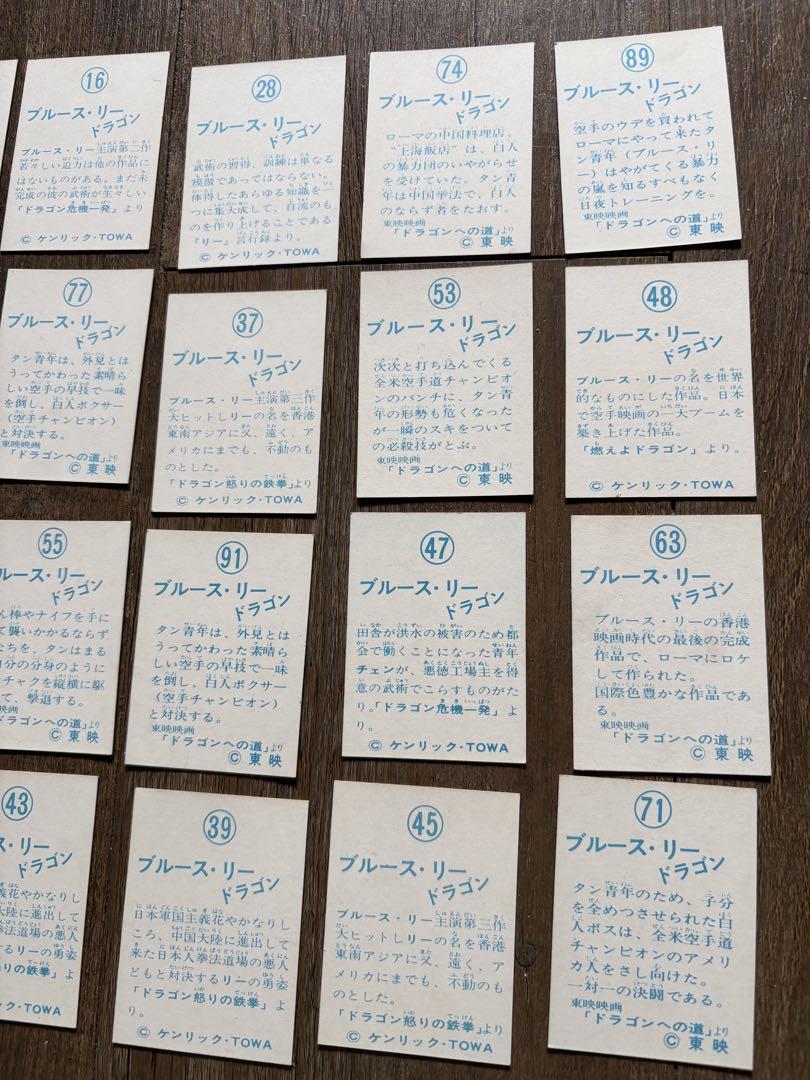 16
ブルース・リー
ドラゴン
ブルース・リー主演第二作
若々しい迫力は他の作品に
はないものがある。まだ未
完成の彼の武術が生々しい
「ドラゴン危機一発」より
© ケンリック・TOWA
28
ブルース・リー
ドラゴン
武術の習得、訓練は単なる
模倣であってはならない。
体得したあらゆる知識を一
つに集大成して、自流のも
のを作り上げることである
『リー』言行録より。
© ケンリック・TOWA
74
ブルース・リー
ドラゴン
ローマの中国料理店、
"上海飯店"は、白人
の暴力団のいやがらせ
を受けていた。タン青
年は中国拳法で、白人
のならず者をたおす。
東映映画
「ドラゴンへの道」より
© 東映
89
ブルース・リー
ドラゴン
空手のウデを買われて
ローマにやって来たタ
ン青年（ブルース・リ
ー）はやがてくる暴力
の嵐を知るすべもなく
日夜トレーニングを。
東映映画
「ドラゴンへの道」より
© 東映
77
ブルース・リー
ドラゴン
タン青年は、外見とは
うってかわった素晴ら
しい空手の早技で一味
を倒し、白人ボクサー
(空手チャンピオン)
と対決する。
東映映画
「ドラゴンへの道」より
© 東映
37
ブルース・リー
ドラゴン
ブルース・リー主演第三作
大ヒットしリーの名を香港
東南アジアに又、遠く、ア
メリカにまでも、不動のも
のとした。
「ドラゴン怒りの鉄拳」より
© ケンリック・TOWA
53
ブルース・リー
ドラゴン
次次と打ち込んでくる
全米空手道チャンピオ
ンのパンチに、タン青
年の形勢も危くなった
が一瞬のスキをついて
の必殺技がとぶ。
東映映画
「ドラゴンへの道」より
© 東映
48
ブルース・リー
ドラゴン
ブルース・リーの名を世界
的なものにした作品。日本
で空手映画の一大ブームを
築き上げた作品。
「燃えよドラゴン」より。
© ケンリック・TOWA
55
ルース・リー
ドラゴン
ん棒やナイフを手に
て襲いかかるならず
たちを、タンはまる
自分の分身のように
チャクを縦横に駆
て、撃退する。
映画
「ドラゴンへの道」より
© 東映
91
ブルース・リー
ドラゴン
タン青年は、外見とは
うってかわった素晴ら
しい空手の早技で一味
を倒し、白人ボクサー
(空手チャンピオン)
と対決する。
東映映画
「ドラゴンへの道」より
© 東映
47
ブルース・リー
ドラゴン
田舎が洪水の被害のため都
会で働くことになった青年
チェンが、悪徳工場主を得
意の武術でこらすものがた
り。「ドラゴン危機一発」よ
り。
© ケンリック・TOWA
63
ブルース・リー
ドラゴン
ブルース・リーの香港
映画時代の最後の完成
作品で、ローマにロケ
して作られた。
国際色豊かな作品であ
る。
東映映画
「ドラゴンへの道」より
© 東映
43
ス・リー
ドラゴン
義花やかなりし
大陸に進出して
拳法道場の悪人
するリーの勇姿
怒りの鉄拳」よ
ク・TOWA
39
ブルース・リー
ドラゴン
日本軍国主義花やかなりし
ころ、中国大陸に進出して
来た日本人拳法道場の悪人
どもと対決するリーの勇姿
「ドラゴン怒りの鉄拳」よ
り。
© ケンリック・TOWA
45
ブルース・リー
ドラゴン
ブルース・リー主演第三作
大ヒットしリーの名を香港
東南アジアに又、遠く、ア
メリカにまでも、不動のも
のとした。
「ドラゴン怒りの鉄拳」より
© ケンリック・TOWA
71
ブルース・リー
ドラゴン
タン青年のため、子分
を全めつさせられた白
人ボスは、全米空手道
チャンピオンのアメリ
カ人をさし向けた。
一対一の決闘である。
東映映画
「ドラゴンへの道」より
© 東映